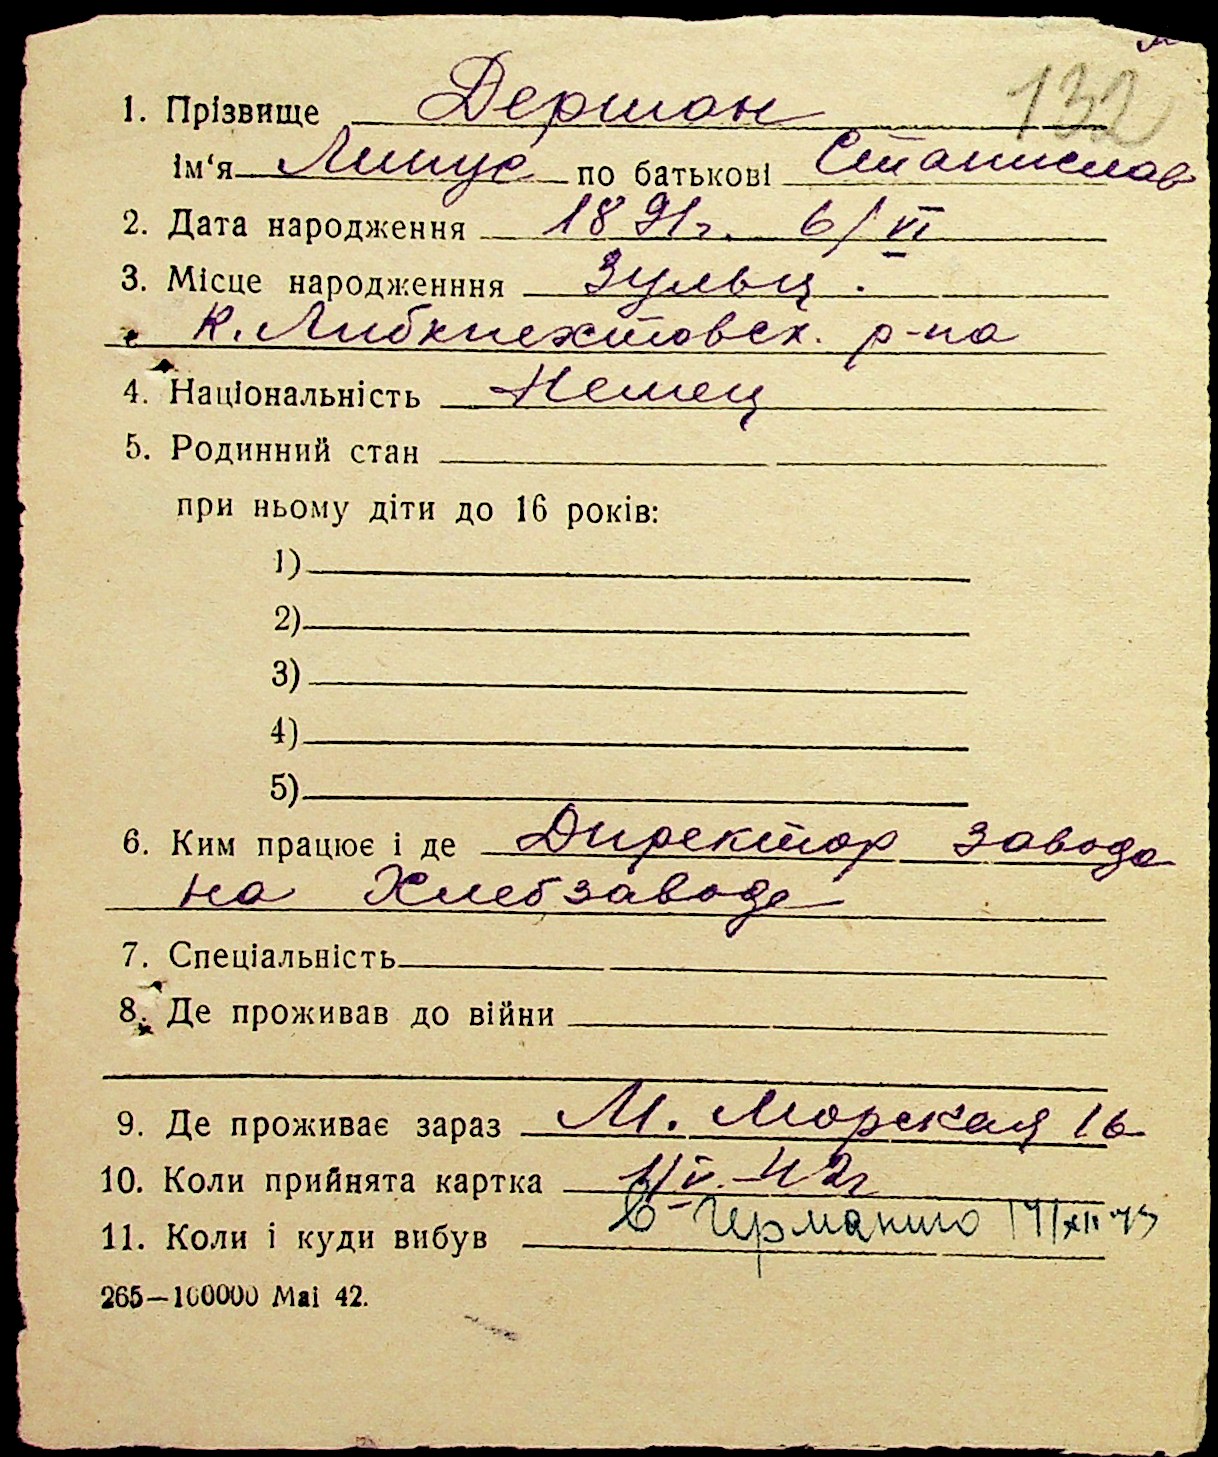 132
1. Прізвище Дерман
ім‘я Линус по батькові Станислав
2. Дата народження 1891г. 6/VI
3. Місце народженння Зульц.
К. Либкнехтовск. р-на
4. Національність Немец
5. Родинний стан
при ньому діти до 16 років:
1)
2)
3)
4)
5)
6. Ким працює і де Директор завода
на Хлебзаводе
7. Спеціальність
8. Де проживав до війни
9. Де проживає зараз М. Морская 16
10. Коли прийнята картка 1/V-42г
11. Коли і куди вибув В Германию 14/XII 43
265—100000 Mai 42.